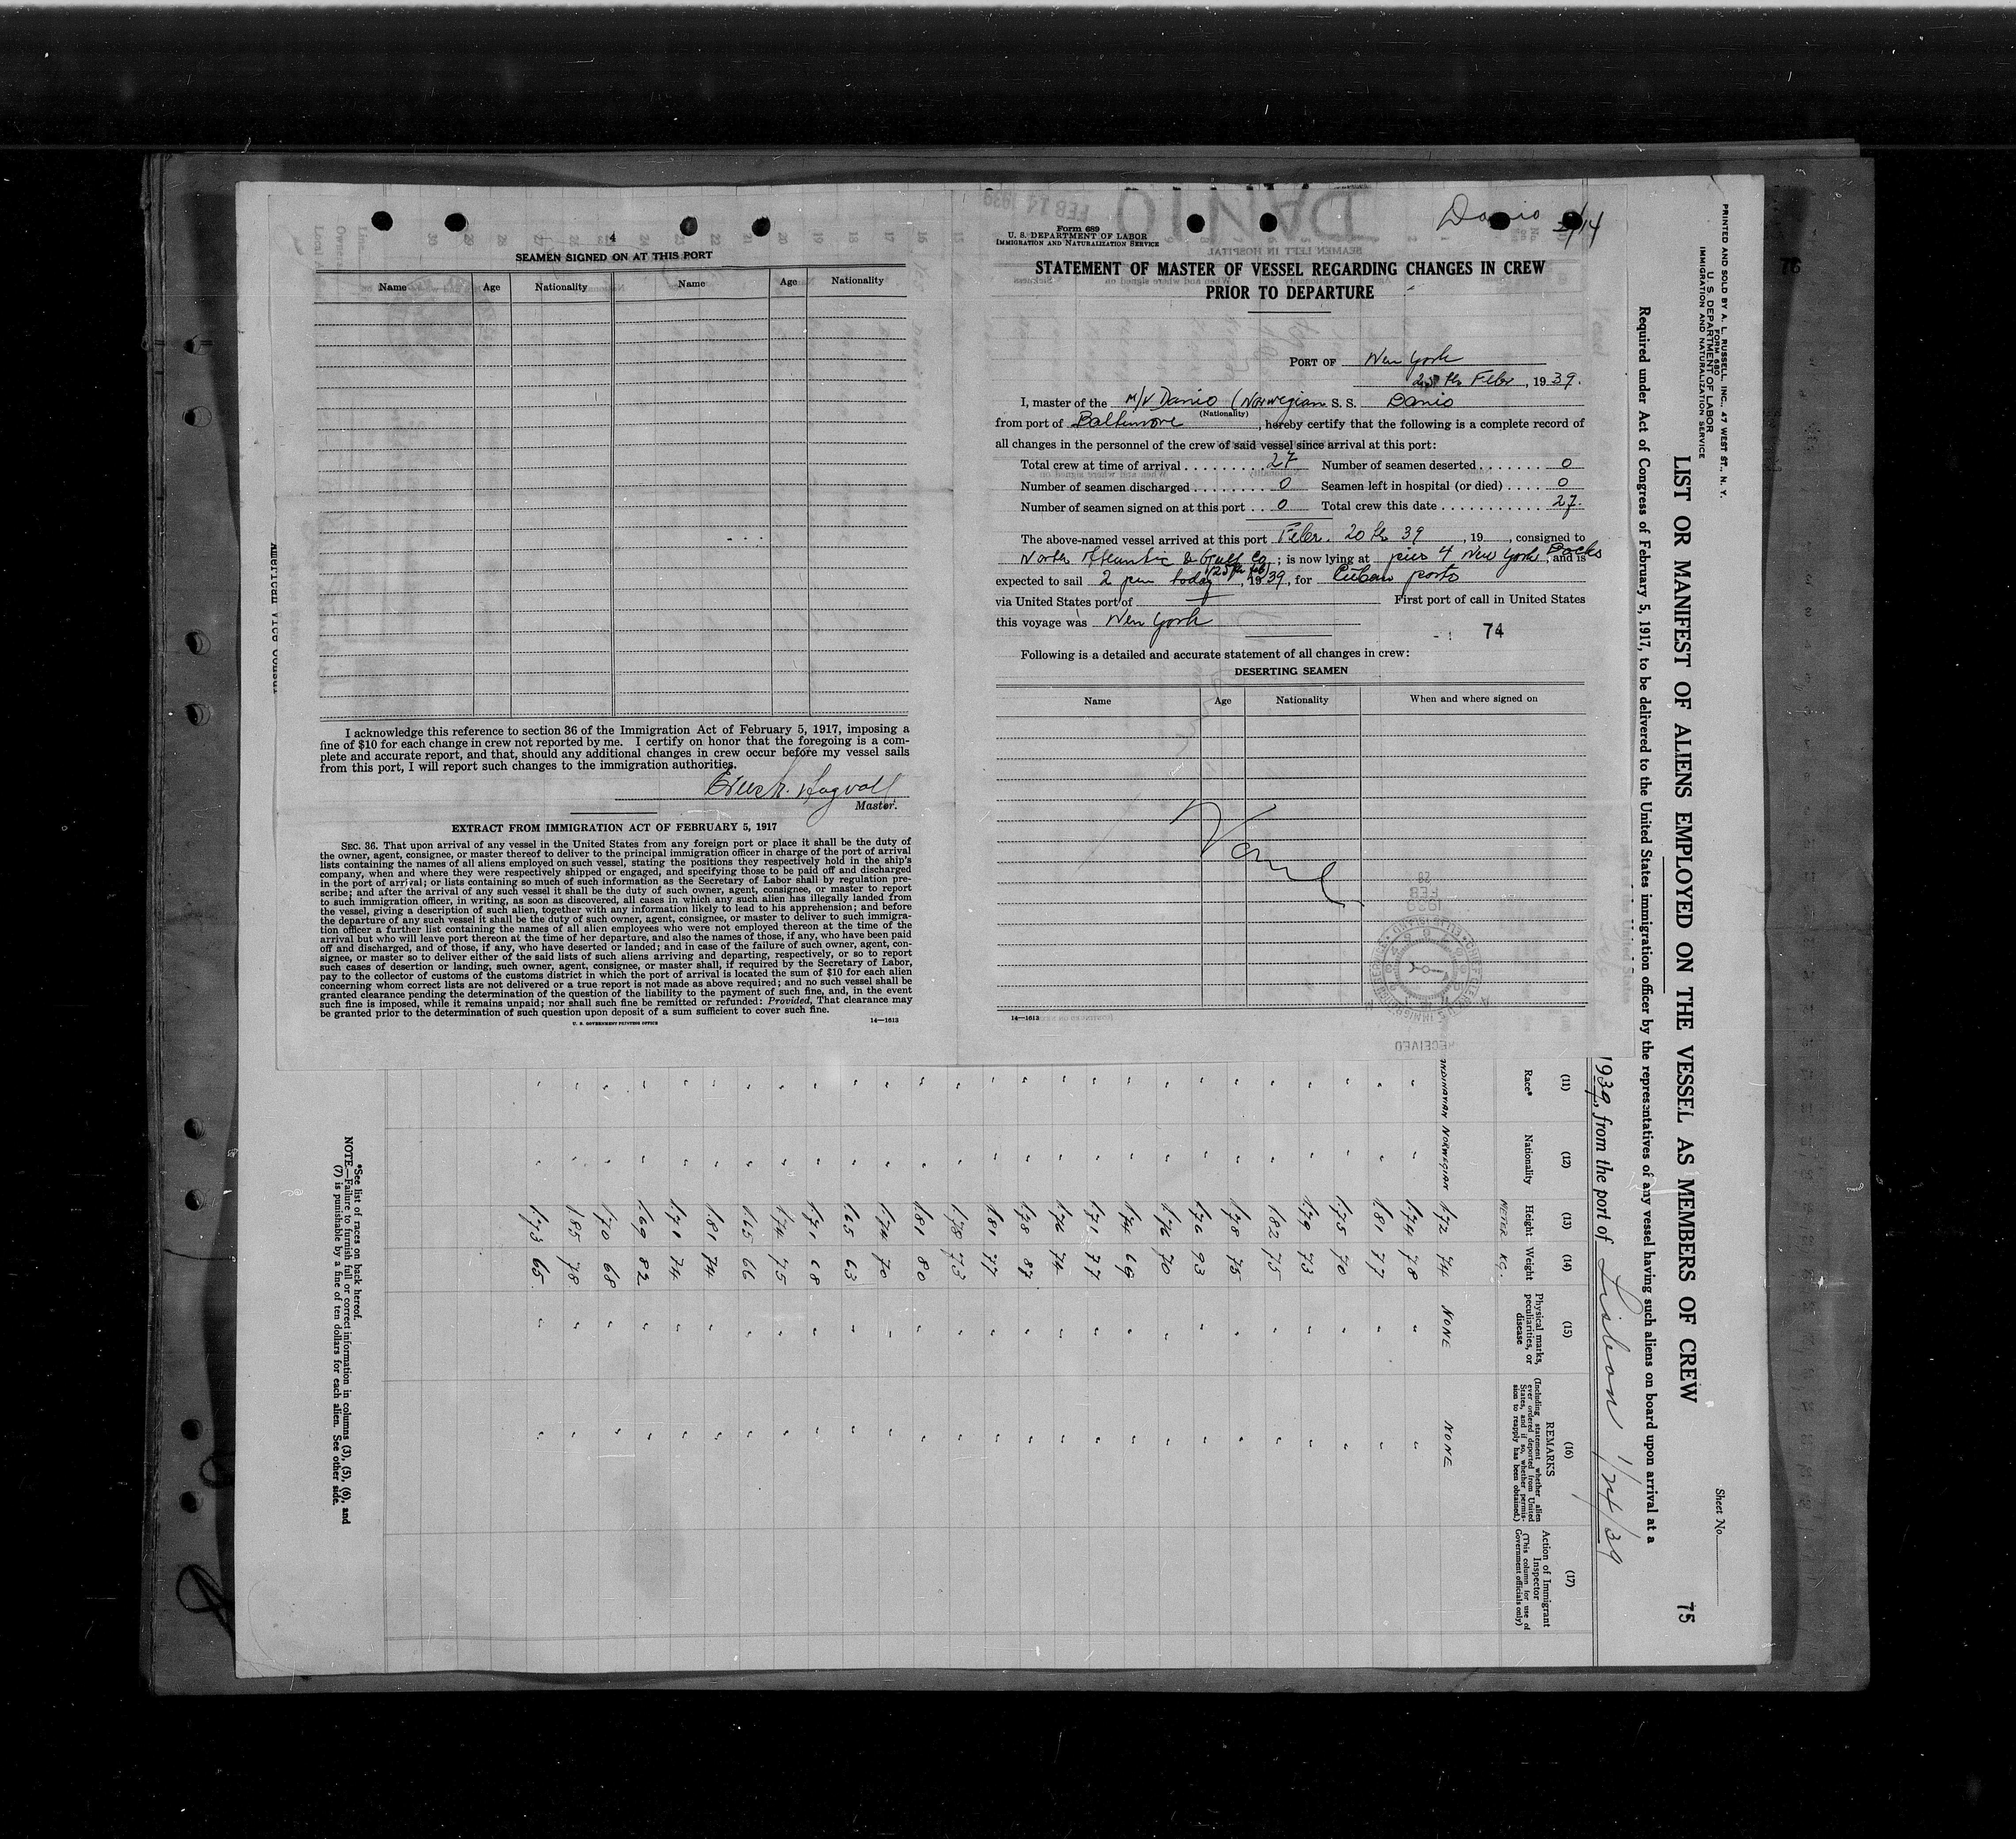 4
SEAMEN SIGNED ON AT THIS PORT
Name Age Nationality Name Age Nationality
I acknowledge this reference to section 36 of the Immigration Act of February 5, 1917, imposing a
fine of $10 for each change in crew not reported by me. I certify on honor that the foregoing is a com-
plete and accurate report, and that, should any additional changes in crew occur before my vessel sails
from this port, I will report such changes to the immigration authorities.
Master.
EXTRACT FROM IMMIGRATION ACT OF FEBRUARY 5, 1917
SEC. 36. That upon arrival of any vessel in the United States from any foreign port or place it shall be the duty of
the owner, agent, consignee, or master thereof to deliver to the principal immigration officer in charge of the port of arrival
lists containing the names of all aliens employed on such vessel, stating the positions they respectively hold in the ship's
company, when and where they were respectively shipped or engaged, and specifying those to be paid off and discharged
in the port of arrival; or lists containing so much of such information as the Secretary of Labor shall by regulation pre-
scribe; and after the arrival of any such vessel it shall be the duty of such owner, agent, consignee, or master to report
to such immigration officer, in writing, as soon as discovered, all cases in which any such alien has illegally landed from
the vessel, giving a description of such alien, together with any information likely to lead to his apprehension; and before
the departure of any such vessel it shall be the duty of such owner, agent, consignee, or master to deliver to such immigra-
tion officer a further list containing the names of all alien employees who were not employed thereon at the time of the
arrival but who will leave port thereon at the time of her departure, and also the names of those, if any, who have been paid
off and discharged, and of those, if any, who have deserted or landed; and in case of the failure of such owner, agent, con-
signee, or master so to deliver either of the said lists of such aliens arriving and departing, respectively, or so to report
such cases of desertion or landing, such owner, agent, consignee, or master shall, if required by the Secretary of Labor,
pay to the collector of customs of the customs district in which the port of arrival is located the sum of $10 for each alien
concerning whom correct lists are not delivered or a true report is not made as above required; and no such vessel shall be
granted clearance pending the determination of the question of the liability to the payment of such fine, and, in the event
such fine is imposed, while it remains unpaid; nor shall such fine be remitted or refunded: Provided, That clearance may
be granted prior to the determination of such question upon deposit of a sum sufficient to cover such fine.
U. S. GOVERNMENT PRINTING OFFICE 14—1613
Danio 2/14
Form 689
U. S. DEPARTMENT OF LABOR
IMMIGRATION AND NATURALIZATION SERVICE
STATEMENT OF MASTER OF VESSEL REGARDING CHANGES IN CREW
PRIOR TO DEPARTURE
PORT OF New York
25 th Febr, 1939.
I, master of the M/V Danio (Norwegian S. S. Danio
(Nationality)
from port of Baltimore, hereby certify that the following is a complete record of
all changes in the personnel of the crew of said vessel since arrival at this port:
Total crew at time of arrival 27 Number of seamen deserted 0
Number of seamen discharged 0 Seamen left in hospital (or died) 0
Number of seamen signed on at this port 0 Total crew this date 27.
The above-named vessel arrived at this port Febr. 20 th 39, 19 , consigned to
North Atlantic & Gulf Co; is now lying at pier 4 New York Docks, and is
expected to sail 2 pm today (25 th feb), 1939, for Cuban ports
via United States port of First port of call in United States
this voyage was New York
74
Following is a detailed and accurate statement of all changes in crew:
DESERTING SEAMEN
Name Age Nationality When and where signed on
None
14—1613
76
PRINTED AND SOLD BY A. L. RUSSELL, INC., 47 WEST ST., N. Y.
FORM 680
U. S. DEPARTMENT OF LABOR
IMMIGRATION AND NATURALIZATION SERVICE
Sheet No.
LIST OR MANIFEST OF ALIENS EMPLOYED ON THE VESSEL AS MEMBERS OF CREW
75
Required under Act of Congress of February 5, 1917, to be delivered to the United States immigration officer by the representatives of any vessel having such aliens on board upon arrival at a
1939, from the port of Lisbon 1/24/39
(11) (12) (13) (14) (15) (16) (17)
Race* Nationality Height Weight Physical marks, peculiarities, or disease REMARKS (Including statement whether alien ever ordered deported from United States, and if so, whether permission to reapply has been obtained.) Action of Immigrant Inspector (This column for use of Government officials only)
METER KG.
NDINAVIAN NORWEGIAN 1.72 74 NONE NONE
" " 1.74 78 " "
" " 1.81 77 " "
" " 1.75 70 " "
" " 1.79 73 " "
" " 1.82 75 " "
" " 1.78 75 " "
" " 1.76 93 " "
" " 1.76 70 " "
" " 1.74 69 " "
" " 1.71 77 " "
" " 1.76 74 " "
" " 1.78 87 " "
" " 1.81 77 " "
" " 1.78 73 " "
" " 1.81 80 " "
" " 1.74 70 " "
" " 1.65 63 " "
" " 1.71 68 " "
" " 1.74 75 " "
" " 1.65 66 " "
" " 1.81 74 " "
" " 1.71 74 " "
" " 1.69 82 " "
" " 1.70 68 " "
" " 1.85 78 " "
" " 1.73 65 " "
*See list of races on back hereof.
NOTE.—Failure to furnish full or correct information in columns (3), (5), (6), and
(7) is punishable by a fine of ten dollars for each alien. See other side.